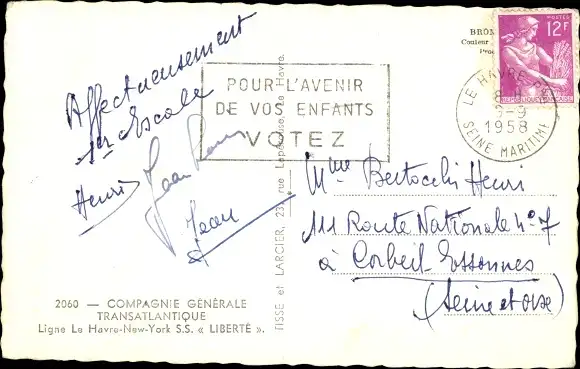 Affectueusement
1er Escale
Henri
Jean
2060 — COMPAGNIE GÉNÉRALE
TRANSATLANTIQUE
Ligne Le Havre-New-York S.S. « LIBERTÉ ».
TISSE et LARCIER, 23, rue Lapérouse, Le Havre.
POUR L'AVENIR
DE VOS ENFANTS
VOTEZ
BRON
Couleur
POSTES
12F
RÉPUBLIQUE FRANÇAISE
LE HAVRE
8 H
-9
1958
SEINE MARITIME
Mme Bertocchi Henri
111 Route Nationale n°7
à Corbeil-Essonnes
(Seine et Oise)